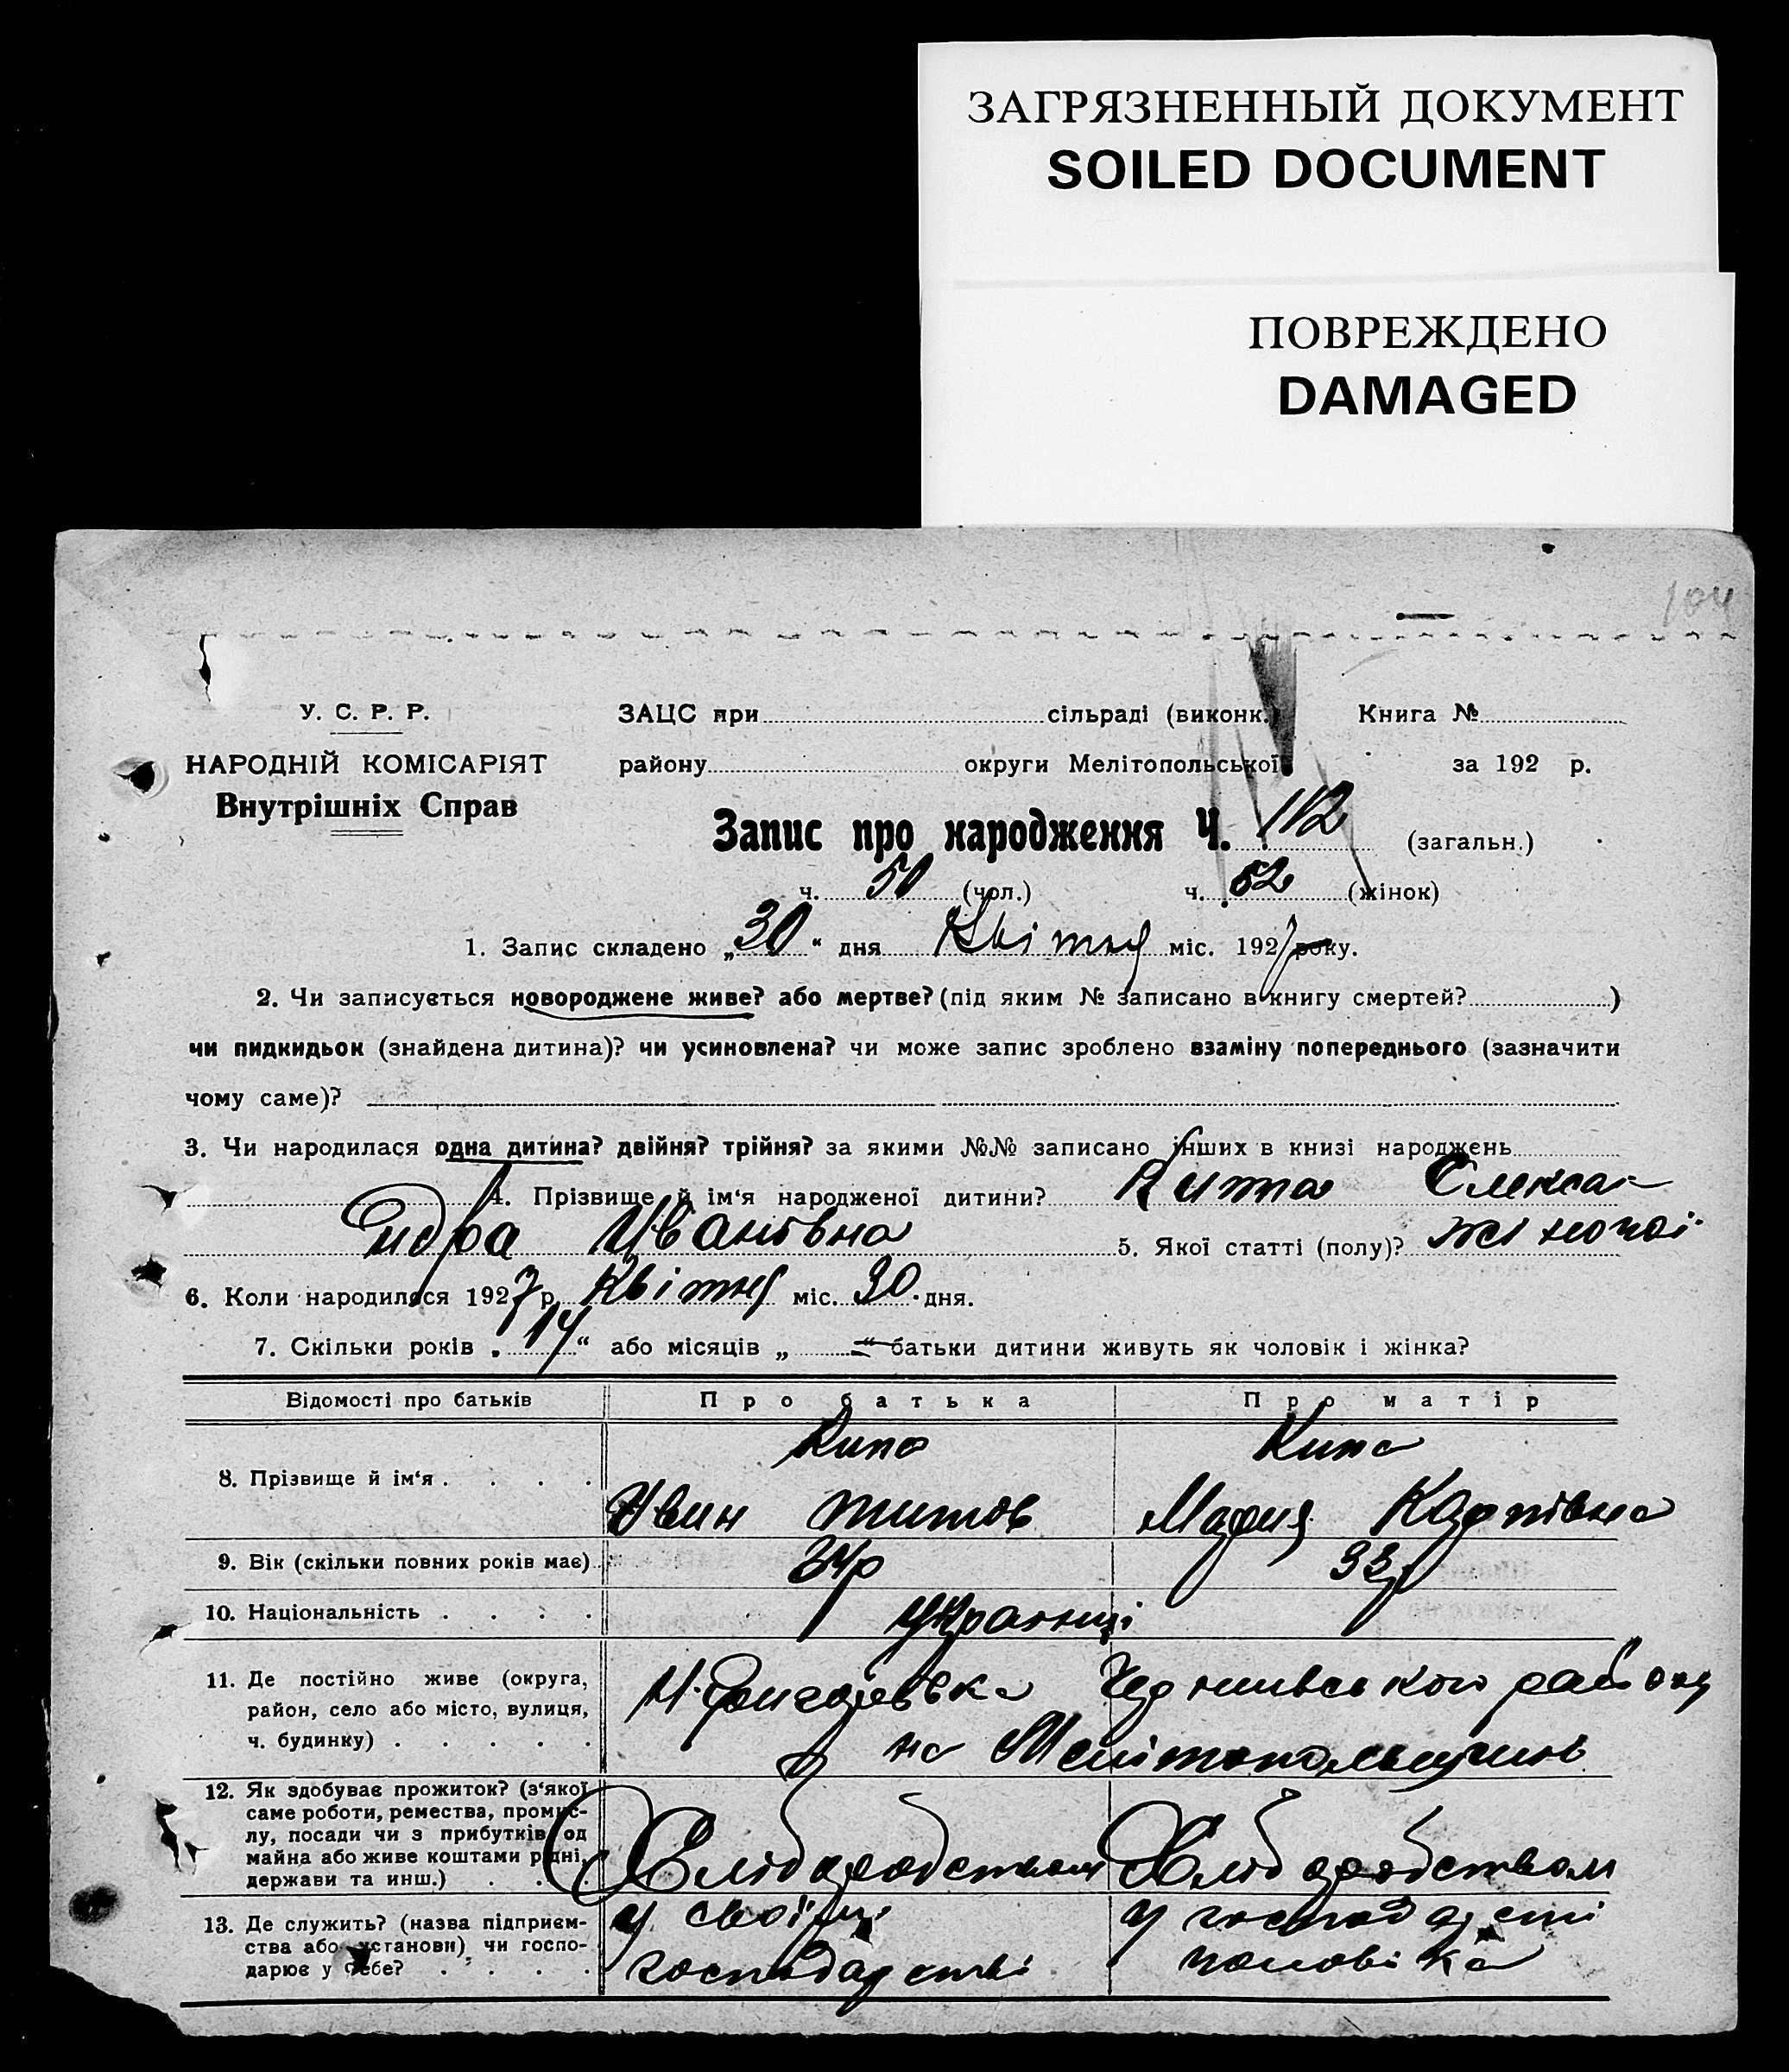 ЗАГРЯЗНЕННЫЙ ДОКУМЕНТ
SOILED DOCUMENT
ПОВРЕЖДЕНО
DAMAGED
104
У. С. Р. Р.
НАРОДНІЙ КОМІСАРІЯТ
Внутрішніх Справ
ЗАЦС при сільраді (виконк.) Книга №
району округи Мелітопольської за 192 р.
Запис про народження Ч. 112 (загальн.)
ч. 50 (чол.) ч. 62 (жінок)
1. Запис складено „30“ дня Квітня міс. 1927 року.
2. Чи записується новороджене живе? або мертве? (під яким № записано в книгу смертей? )
чи пидкидьок (знайдена дитина)? чи усиновлена? чи може запис зроблено взаміну попереднього (зазначити
чому саме)?
3. Чи народилася одна дитина? двійня? трійня? за якими №№ записано інших в книзі народжень
4. Прізвище й ім‘я народженої дитини? Кипа Олекса-
ндра Ивановна 5. Якої статті (полу)? жіночої
6. Коли народилося 1927 р. Квітня міс. 30 дня.
7. Скільки років „14“ або місяців „ “ батьки дитини живуть як чоловік і жінка?
Відомості про батьків Про батька Про матір
8. Прізвище й ім‘я . . . . Кипа Кипа
Иван титов Мария Карпівна
9. Вік (скільки повних років має) 34р 33р
10. Національність . . . . українці
11. Де постійно живе (округа, район, село або місто, вулиця, ч. будинку) . . . . . Н. Григорівка Чернивського району
на Мелітопольщині
12. Як здобуває прожиток? (з‘якої саме роботи, ремества, промис-лу, посади чи з прибутків од майна або живе коштами рідні, держави та инш.) . . . Хліборобством Хліборобством
13. Де служить? (назва підприєм-ства або установи) чи госпо-дарює у себе? . . . . у своїм у господарстві
господарстві чоловіка